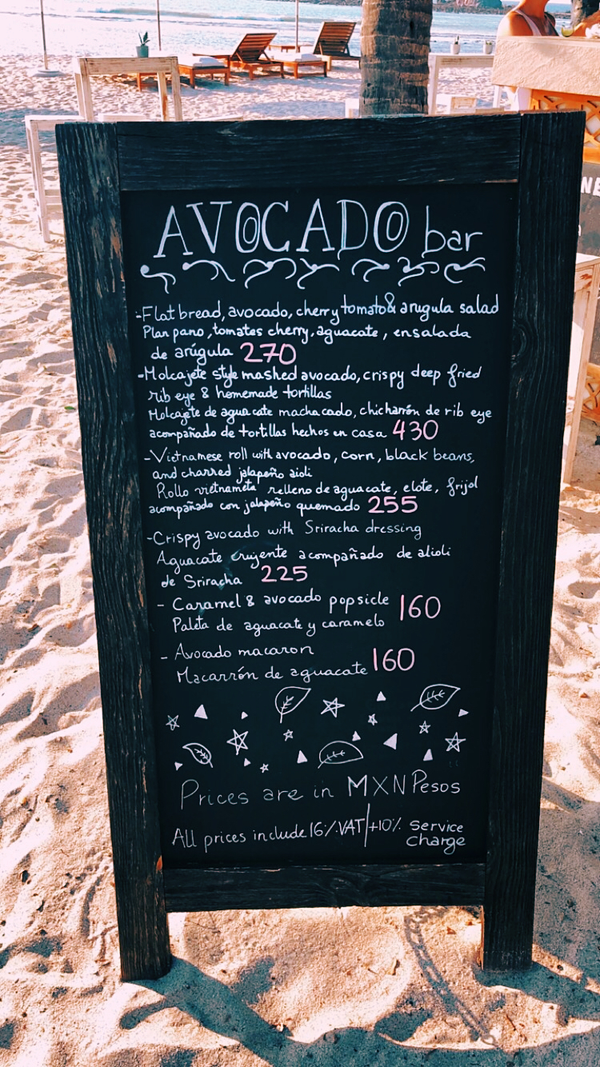 AVOCADO bar
-Flatbread, avocado, cherry tomato & arugula salad
Plan pano, tomates cherry, aguacate, ensalada
de arúgula 270
-Molcajete style mashed avocado, crispy deep fried
rib eye & homemade tortillas
Molcajete de aguacate machacado, chicharrón de rib eye
acompañado de tortillas hechos en casa 430
-Vietnamese roll with avocado, corn, black beans,
and charred jalapeño aioli
Rollo vietnameta relleno de aguacate, elote, frijol
acompañado con jalapeño quemado 255
-Crispy avocado with Sriracha dressing
Aguacate crujente acompañado de alioli
de Sriracha 225
- Caramel & avocado popsicle 160
Paleta de aguacate y caramelo
- Avocado macaron
Macarrón de aguacate 160
Prices are in MXN Pesos
All prices include 16% VAT/+10% service
charge
NE